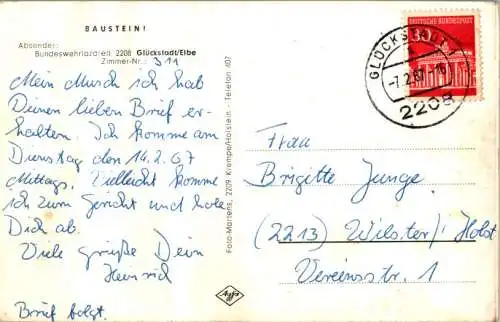 BAUSTEIN!
Absender:
Bundeswehrlazarett, 2208 Glückstadt/Elbe
Zimmer-Nr.: 311
Mein Mursch ich hab
Deinen lieben Brief er-
halten. Ich komme am
Dienstag den 14.2.67
Mittags. Vielleicht komme
ich zum Gericht und hole
Dich ab.
Viele grüße Dein
Heinrich
Brief folgt.
Foto-Martens, 2209 Krempe/Holstein · Telefon 407
Agfa
DEUTSCHE BUNDESPOST
30
GLÜCKSTADT 1
a
-7.2.67-16
2208
Frau
Brigitte Junge
(2213) Wilster/Holst
Vereinsstr. 1